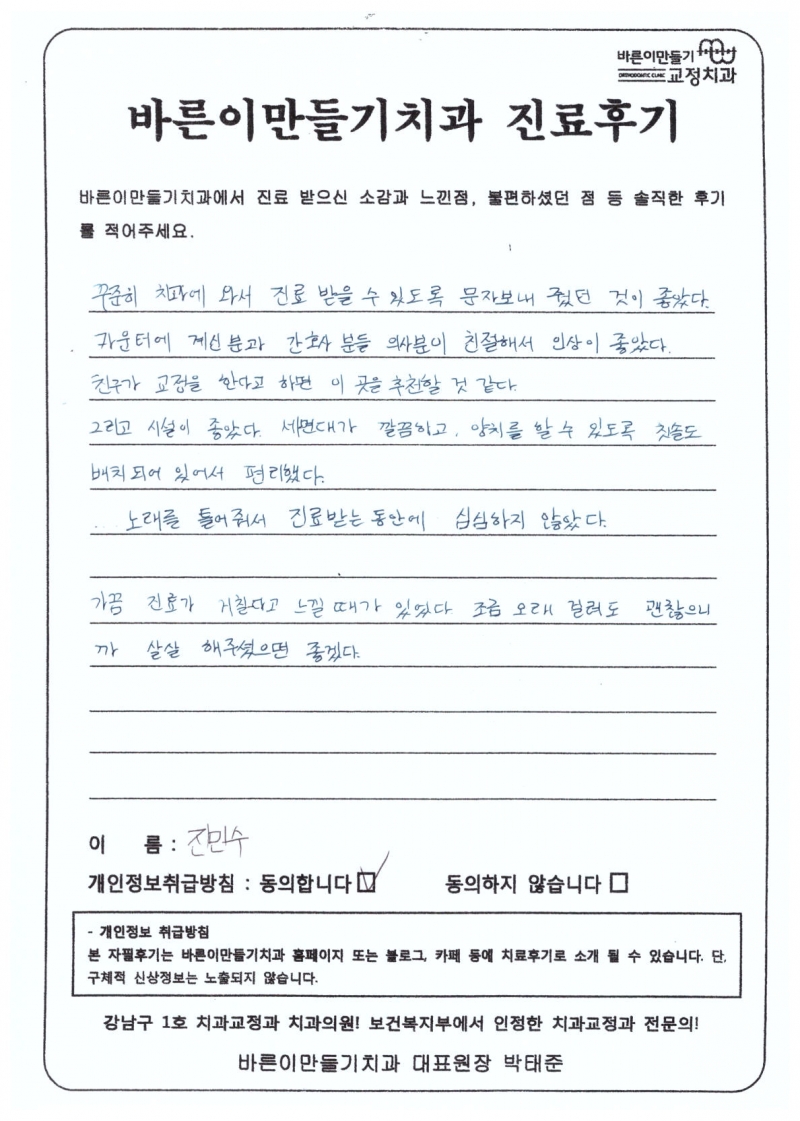 바른이만들기
ORTHODONTIC CLINIC 교정치과
바른이만들기치과 진료후기
바른이만들기치과에서 진료 받으신 소감과 느낀점, 불편하셨던 점 등 솔직한 후기
를 적어주세요.
꾸준히 치과에 와서 진료 받을 수 있도록 문자보내 줬던 것이 좋았다.
카운터에 계신분과 간호사 분들 의사분이 친절해서 인상이 좋았다.
친구가 교정을 한다고 하면 이 곳을 추천할 것 같다.
그리고 시설이 좋았다. 세면대가 깔끔하고, 양치를 할 수 있도록 칫솔도
배치되어 있어서 편리했다.
... 노래를 틀어줘서 진료받는 동안에 심심하지 않았다.
가끔 진료가 거칠다고 느낄 때가 있었다. 조금 오래 걸려도 괜찮으니
까 살살 해주셨으면 좋겠다.
이 름 : 진민수
개인정보취급방침 : 동의합니다 동의하지 않습니다
- 개인정보 취급방침
본 자필후기는 바른이만들기치과 홈페이지 또는 블로그, 카페 등에 치료후기로 소개 될 수 있습니다. 단,
구체적 신상정보는 노출되지 않습니다.
강남구 1호 치과교정과 치과의원! 보건복지부에서 인정한 치과교정과 전문의!
바른이만들기치과 대표원장 박태준